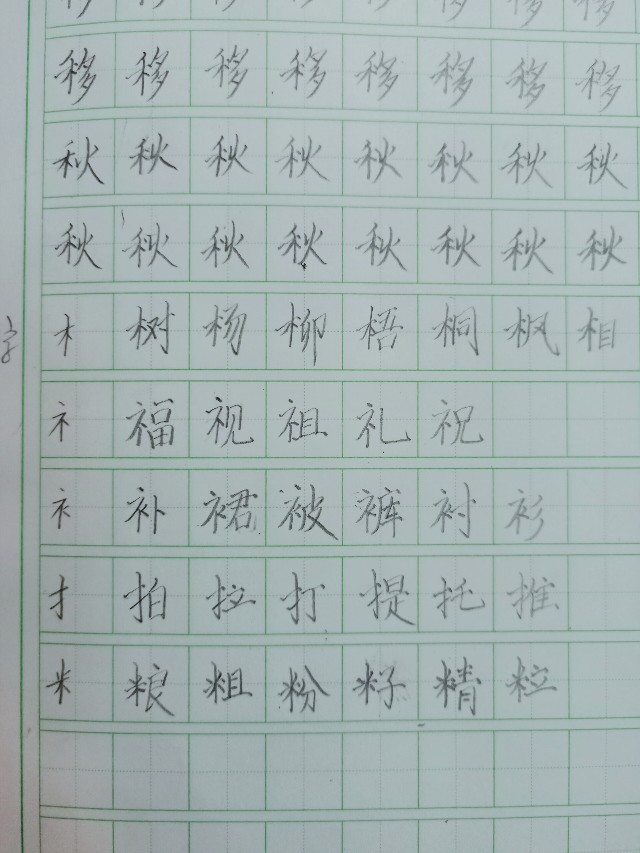 移 移 移 移 移 移 移 移
移 移 移 移 移 移 移 移
秋 秋 秋 秋 秋 秋 秋 秋
秋 秋 秋 秋 秋 秋 秋 秋
木 树 杨 柳 梧 桐 枫 相
礻 福 视 祖 礼 祝
衤 补 裙 被 裤 衬 衫
扌 拍 拉 打 提 托 推
米 粮 粗 粉 籽 精 粒